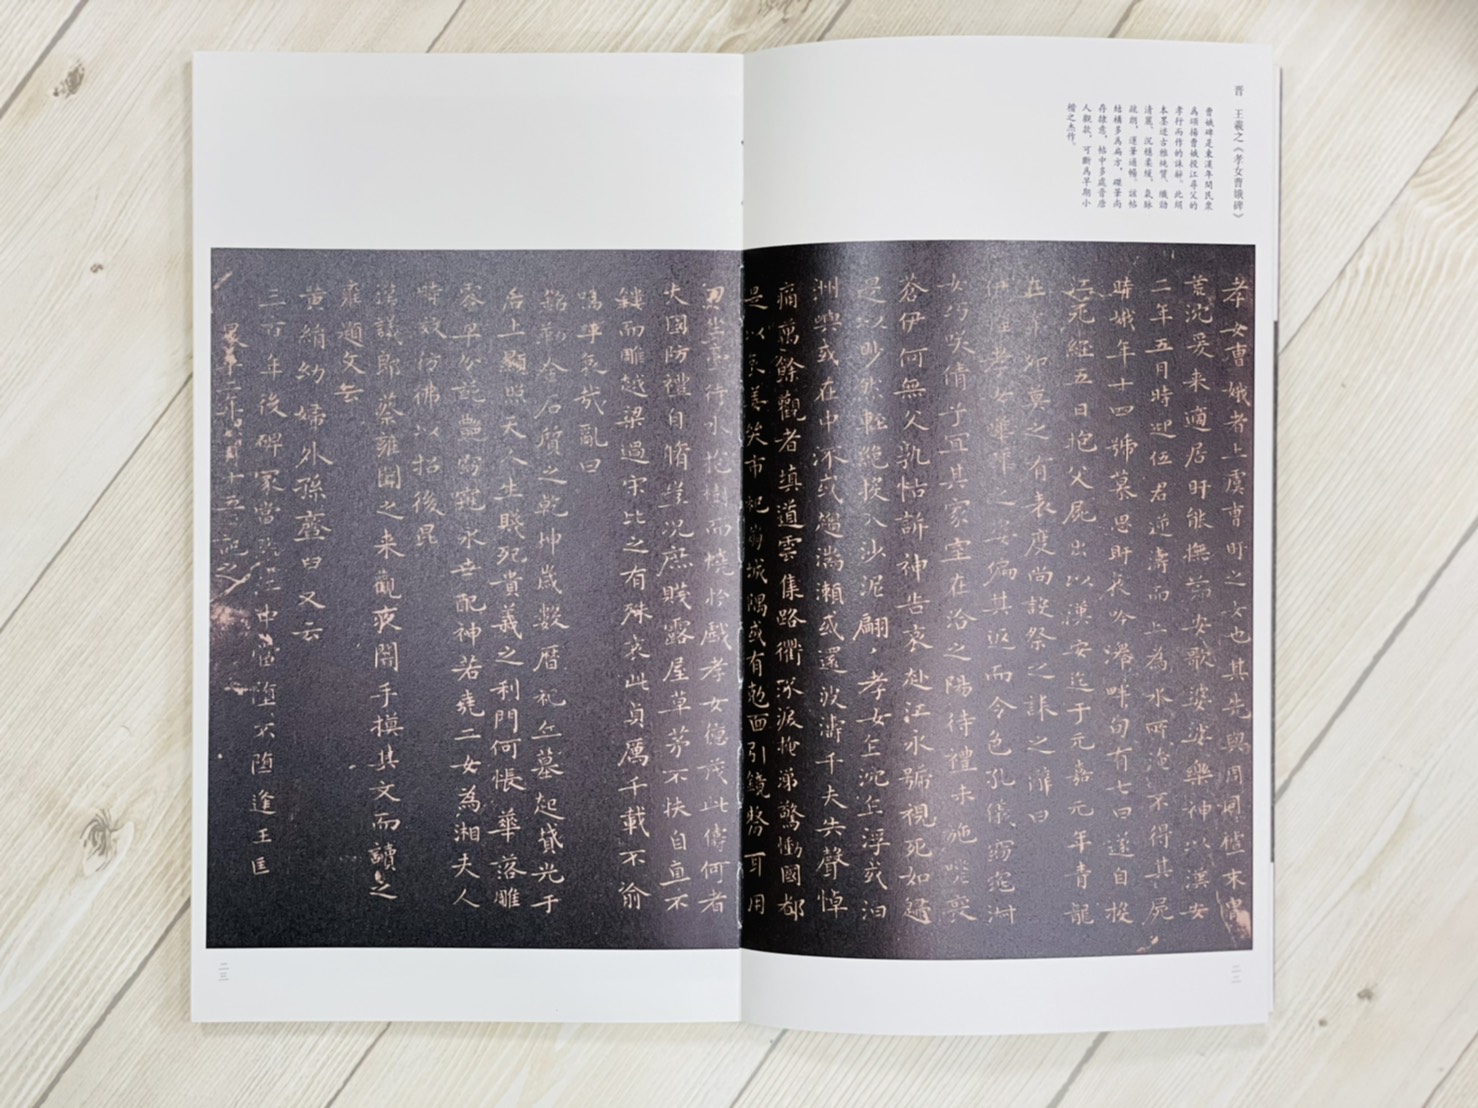 晋　王羲之《孝女曹娥碑》
曹娥碑是東漢年間民眾
為頌揚曹娥投江尋父的
孝行而作的誄辭。此絹
本墨迹古雅純質，纖勁
清麗，沉穩柔緩，氣脉
疏朗，運筆通暢。該帖
結構多為扁方，磔筆尚
存隸意，帖中多處晋唐
人觀款，可斷為早期小
楷之杰作。
孝女曹娥者上虞曹盱之女也其先與周同祖末胄
荒沈爰来適居盱能撫節安歌婆娑樂神以漢安
二年五月時迎伍君逆濤而上為水所淹不得其屍
時娥年十四號慕思盱哀吟澤畔旬有七日遂自投
江死經五日抱父屍出以漢安迄于元嘉元年青龍
在辛卯莫之有表度尚設祭之誄之辭曰
伊惟孝女曄曄之姿偏其返而令色孔儀窈窕淑
女巧咲倩兮宜其家室在洽之陽待禮未施嗟喪
蒼伊何無父孰怙訴神告哀赴江永號視死如歸
是以眇然輕絕投入沙泥翩、孝女乍沈乍浮或泊
洲嶼或在中流或趨湍瀨或還波濤千夫失聲悼
痛萬餘觀者填道雲集路衢泣淚掩涕驚慟國都
是以哀姜哭市杞崩城隅或有尅面引鏡剺耳用
刀坐臺待水抱樹而燒於戲孝女德茂此儔何者
大國防禮自脩豈況庶賤露屋草茅不扶自直不
鏤而雕越梁過宋比之有殊哀此貞厲千載不渝
嗚呼哀哉亂曰
銘勒金石質之乾坤歲數曆祀丘墓起墳光于
后土顯照天人生賤死貴義之利門何悵華落雕
零早分葩艷窈窕永世配神若堯二女為湘夫人
時效仿佛以招後昆
漢議郎蔡雍聞之来觀夜闇手摸其文而讀之
雍題文云
黃絹幼婦外孫齏臼又云
三百年後碑冢當墮江中當墮不墮逢王匡
昇平二年八月十五日記之
二二
二三